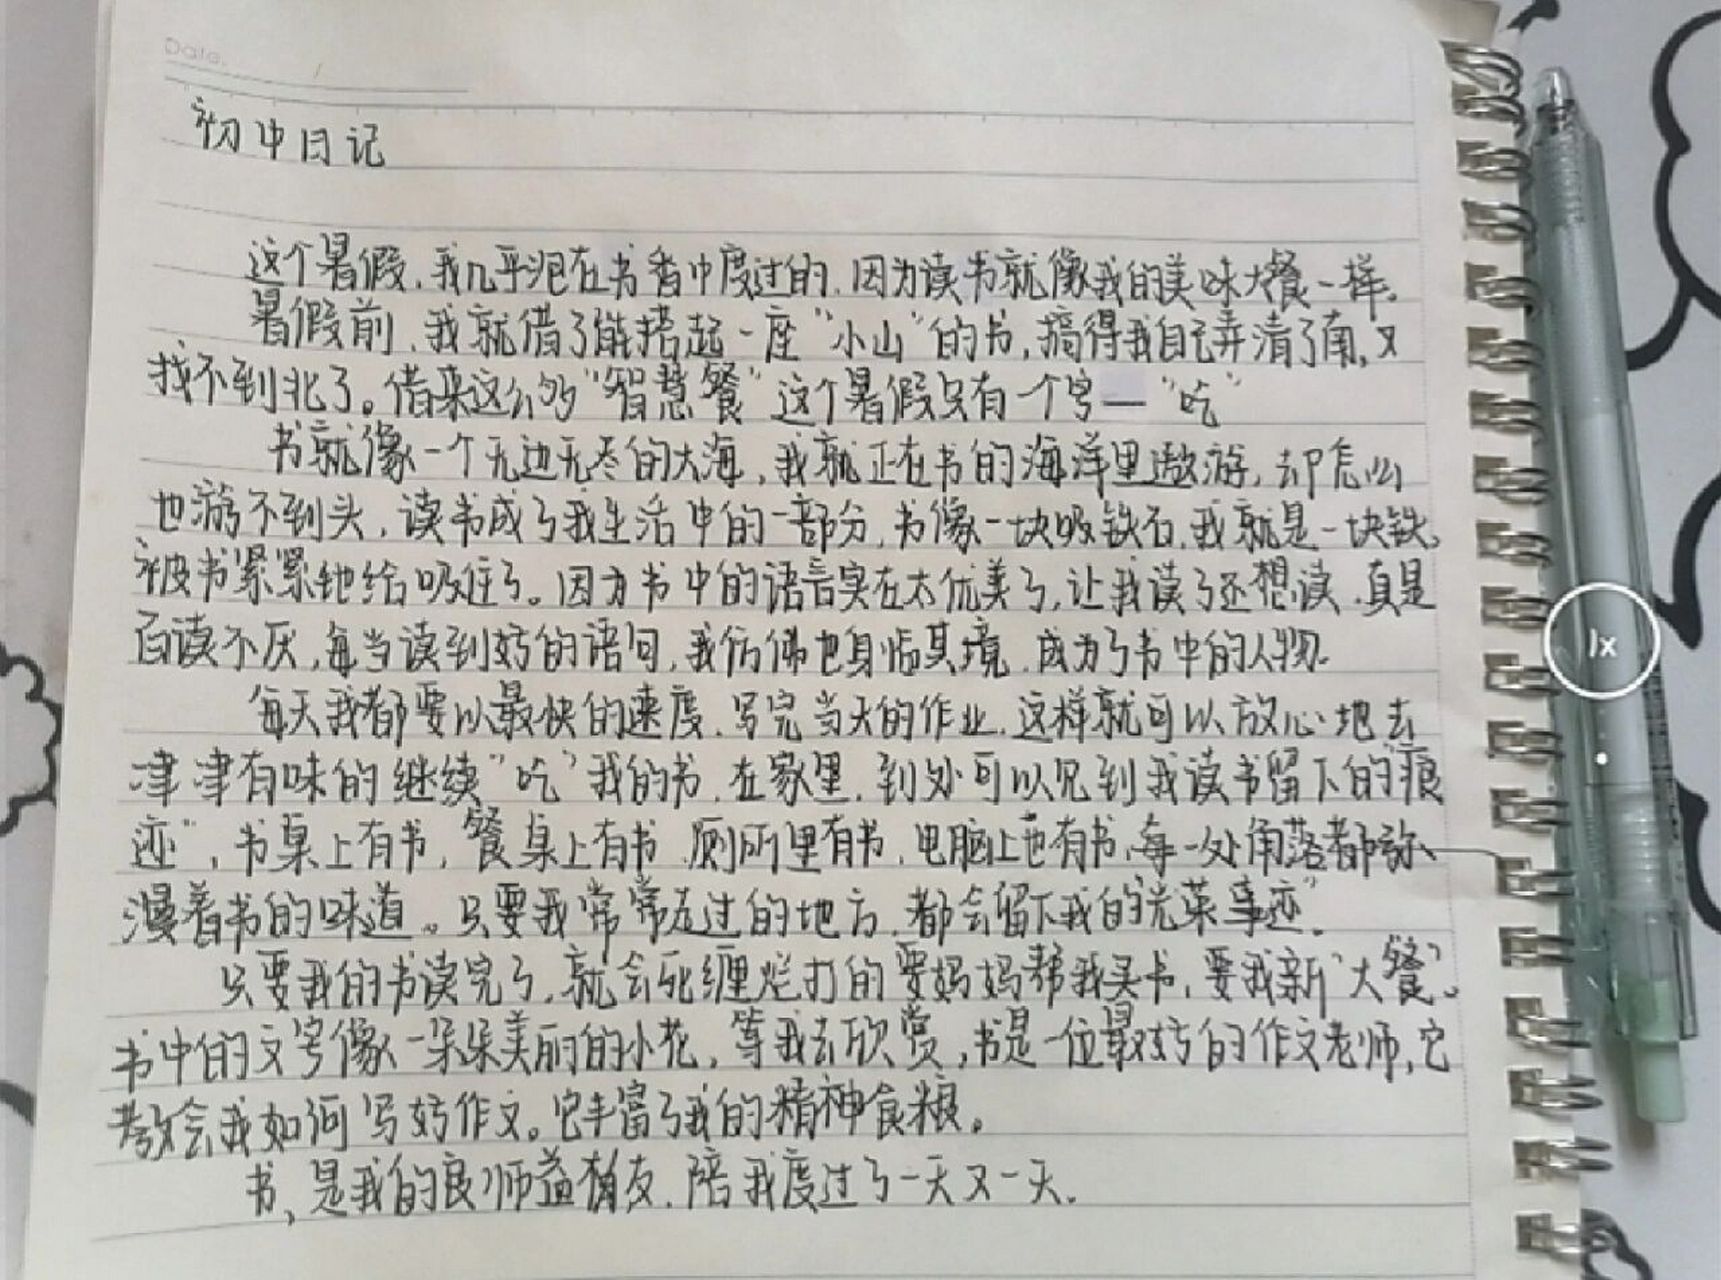 Date.
初中日记
这个暑假,我几乎泡在书香中度过的,因为读书就像我的美味大餐一样。
暑假前,我就借了能搭起一座“小山”的书,搞得我自己弄清了南,又
找不到北了。借来这么多“智慧餐”这个暑假只有一个字—“吃”
书就像一个无边无尽的大海,我就正在书的海洋里遨游,却怎么
也游不到头,读书成了我生活中的一部分,书像一块吸铁石,我就是一块铁。
被书紧紧地给吸住了。因为书中的语言实在太优美了,让我读了还想读,真是
百读不厌,每当读到好的语句,我仿佛也身临其境,成为了书中的人物.
每天我都要以最快的速度,写完当天的作业,这样就可以放心地去
津津有味的继续“吃”我的书,在家里,到处可以见到我读书留下的“痕
迹”,书桌上有书,餐桌上有书,厕所里有书,电脑上也有书,每一处角落都弥
漫着书的味道。只要我常常走过的地方,都会留下我的“光荣事迹”.
只要我的书读完了,就会死缠烂打的要妈妈帮我买书,要我新“大餐”。
书中的文字像一朵朵美丽的小花,等我去欣赏,书是一位最好的作文老师,它
教会我如何写好作文。它丰富了我的精神食粮。
书、是我的良师益友,陪我度过了一天又一天.
1x